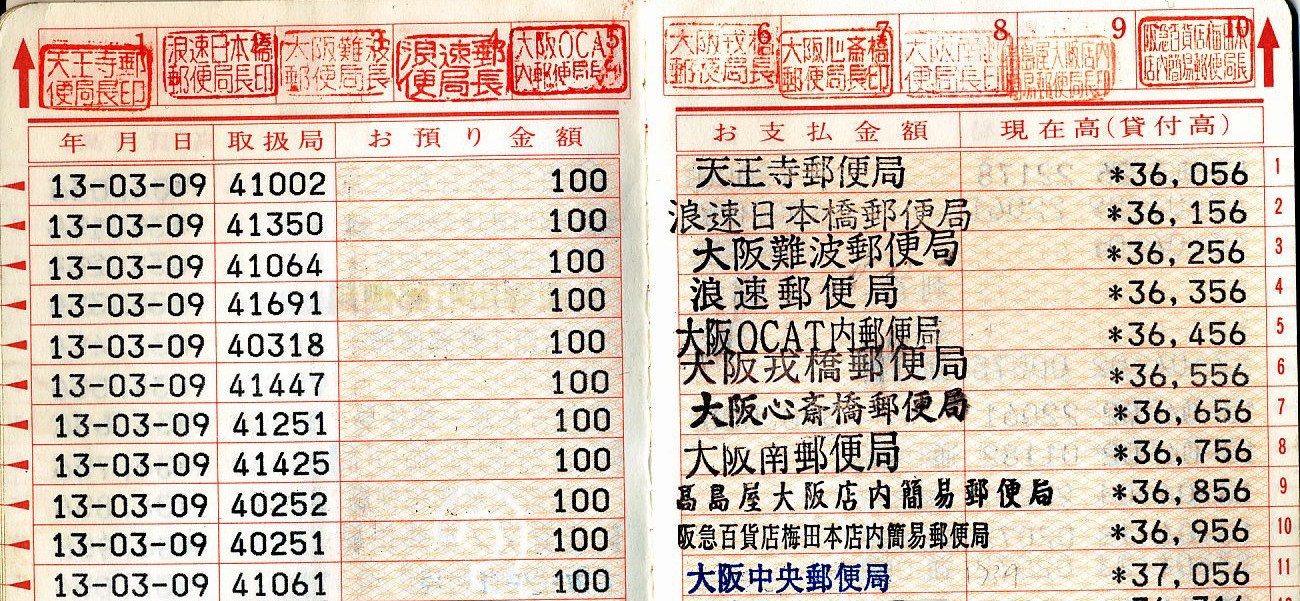 1 2 3 4 5 6 7 8 9 10
天王寺郵便局長印
浪速日本橋郵便局長印
大阪難波郵便局長
浪速郵便局長
大阪OCAT内郵便局長
大阪戎橋郵便局長
大阪心斎橋郵便局長印
大阪南郵便局長
高島屋大阪店内簡易郵便局長
阪急百貨店梅田本店内簡易郵便局長
年月日 取扱局 お預り金額 お支払金額 現在高(貸付高)
13-03-09 41002 100 天王寺郵便局 *36,056 1
13-03-09 41350 100 浪速日本橋郵便局 *36,156 2
13-03-09 41064 100 大阪難波郵便局 *36,256 3
13-03-09 41691 100 浪速郵便局 *36,356 4
13-03-09 40318 100 大阪OCAT内郵便局 *36,456 5
13-03-09 41447 100 大阪戎橋郵便局 *36,556 6
13-03-09 41251 100 大阪心斎橋郵便局 *36,656 7
13-03-09 41425 100 大阪南郵便局 *36,756 8
13-03-09 40252 100 高島屋大阪店内簡易郵便局 *36,856 9
13-03-09 40251 100 阪急百貨店梅田本店内簡易郵便局 *36,956 10
13-03-09 41061 100 大阪中央郵便局 *37,056 11